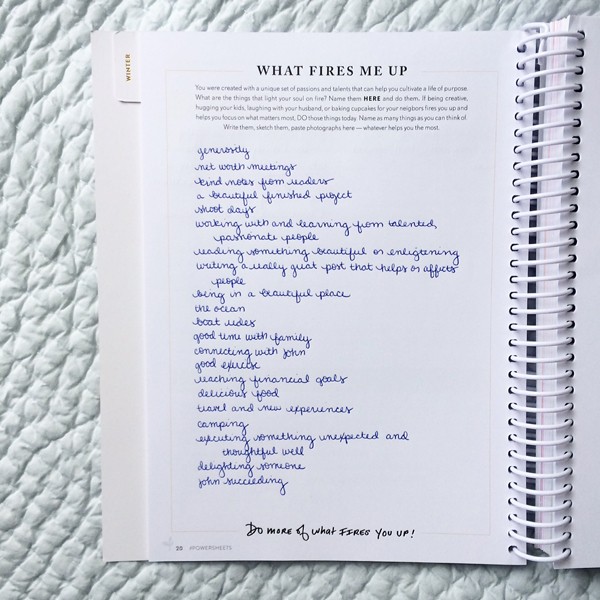 WINTER
WHAT FIRES ME UP
You were created with a unique set of passions and talents that can help you cultivate a life of purpose.
What are the things that light your soul on fire? Name them HERE and do them. If being creative,
hugging your kids, laughing with your husband, or baking cupcakes for your neighbors fires you up and
helps you focus on what matters most, DO those things today. Name as many things as you can think of
Write them, sketch them, paste photographs here — whatever helps you the most.
generosity
net worth meetings
kind notes from readers
a beautiful finished project
shoot days
working with and learning from talented,
passionate people
reading something beautiful or enligtening
writing a really great post that helps or affects
people
being in a beautiful place
the ocean
boat rides
good time with family
connecting with john
good exercise
reaching financial goals
delicious food
travel and new experiences
camping
executing something unexpected and
thoughtful well
delighting someone
john succeeding
DO MORE of WHAT FIRES YOU UP!
20 #POWERSHEETS